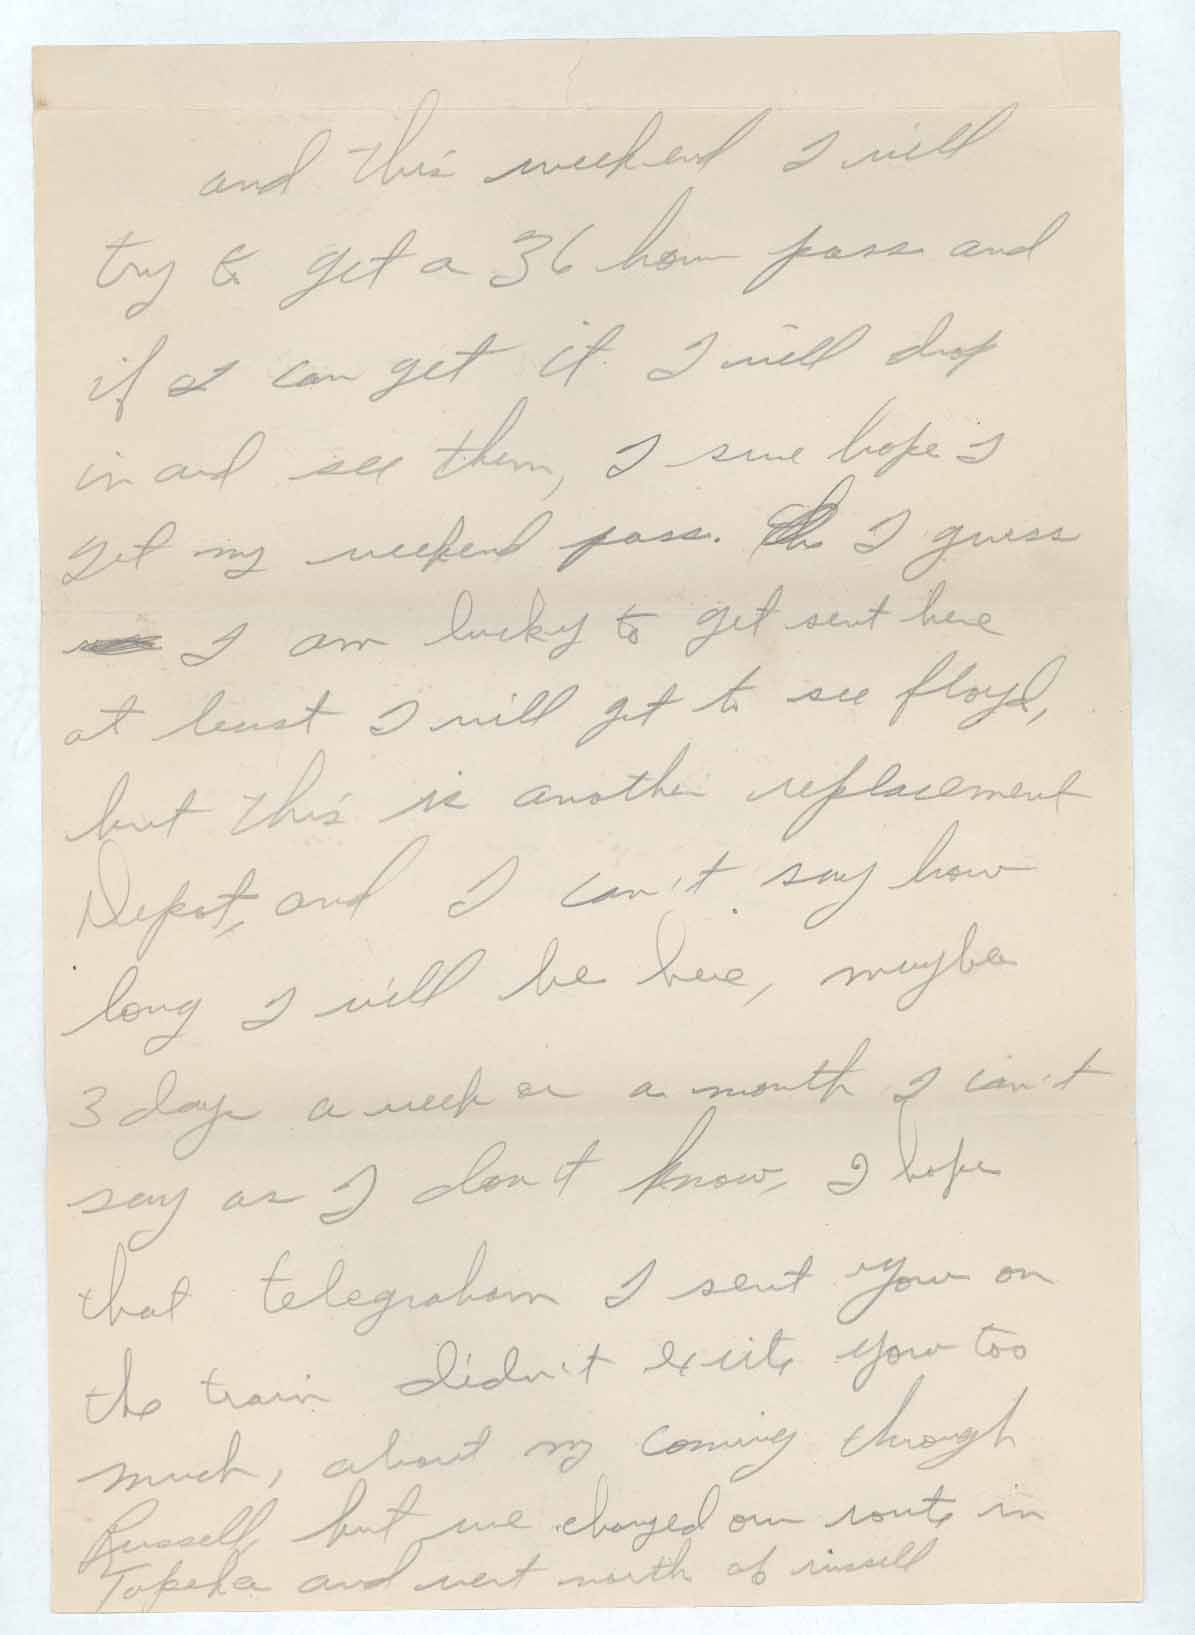 and this weekend I will
try to get a 36 hour pass and
if I can get it I will drop
in and see them, I sure hope I
get my weekend pass. I guess
I am lucky to get sent here
at least I will get to see floyd,
but this is another replacement
Depot, and I can't say how
long I will be here, maybe
3 days a week or a month I can't
say as I don't know, I hope
that telegraham I sent you on
the train didn't exite you too
much, about my coming through
Russell, but we changed our route in
Topeka and went north of russell